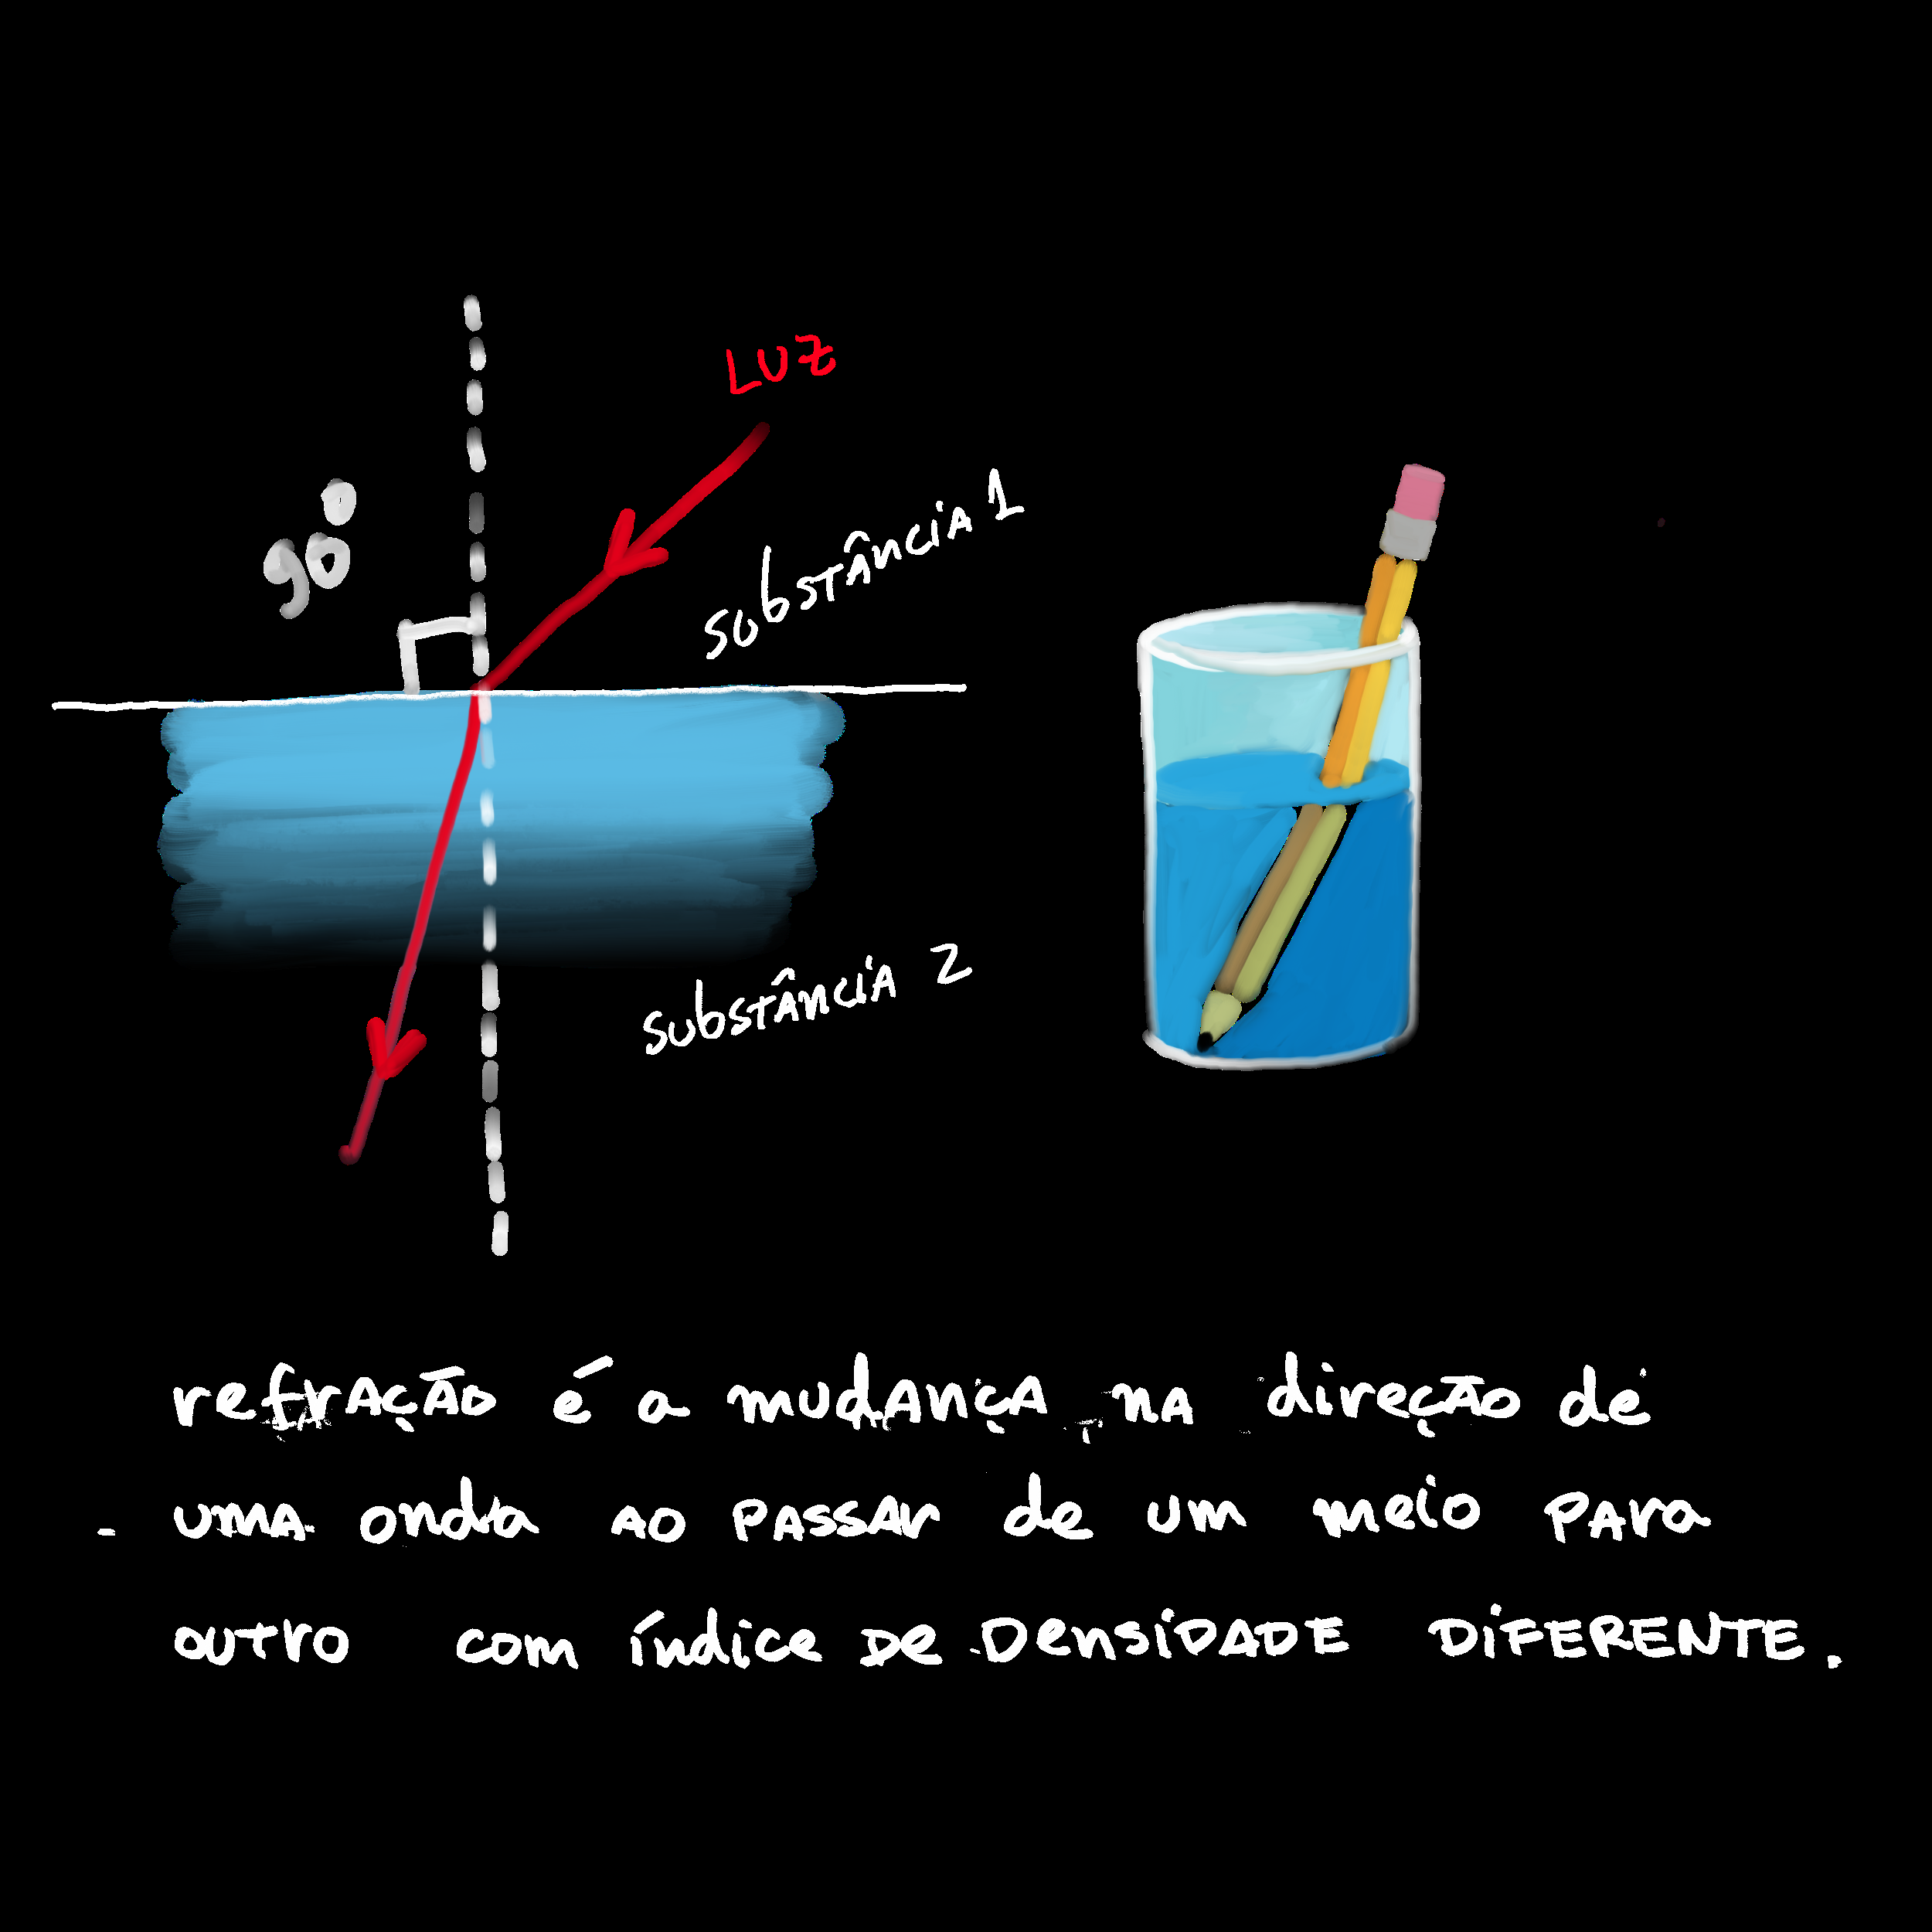 LUZ
90°
substância 1
substância 2
refração é a mudança na direção de
uma onda ao passar de um meio para
outro com índice de DensiDADE DiFERENTE.